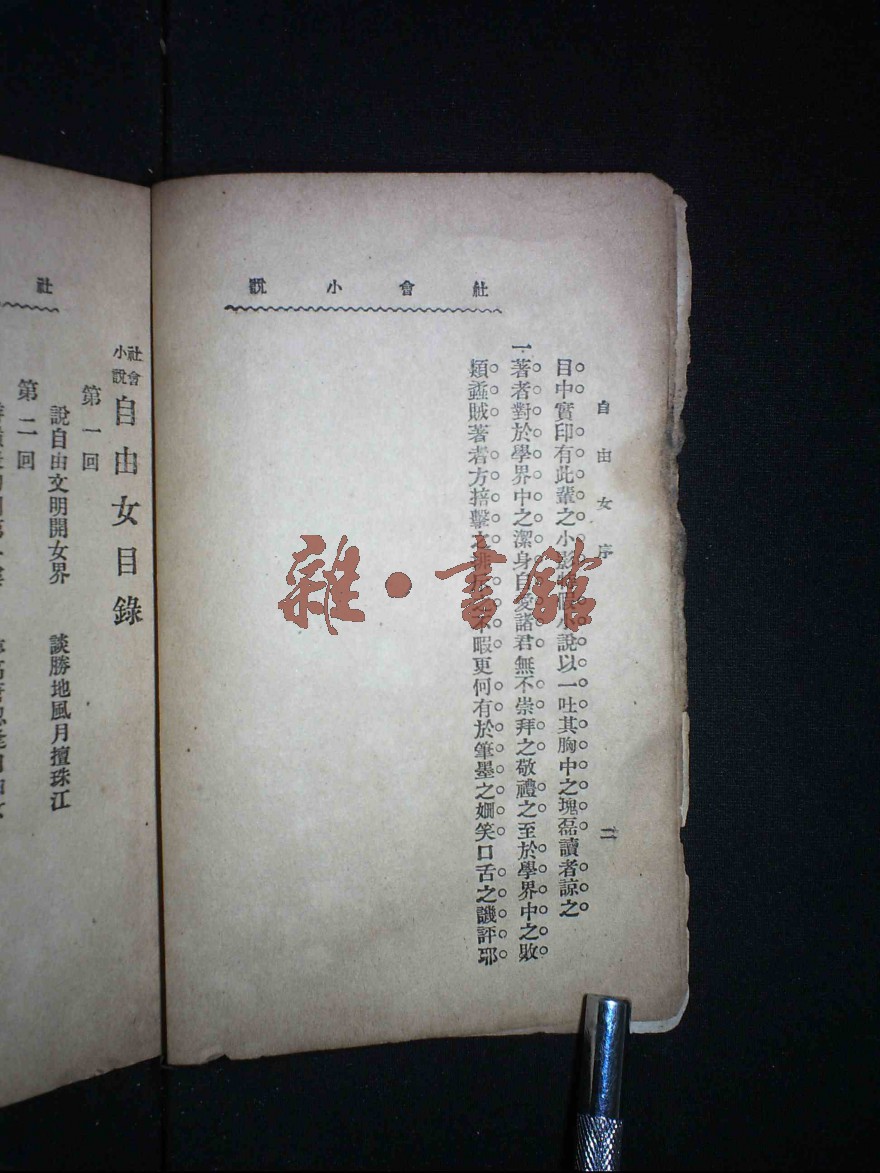 社會小說
自由女序
二
目中實印有此輩之小影說以一吐其胸中之塊磊讀者諒之
一著者對於學界中之潔身自愛諸君無不崇拜之敬禮之至於學界中之敗
類蟊賊著者方掊擊之不暇更何有於筆墨之姍笑口舌之譏評耶
雜·書館
社
社會小說自由女目錄
第一回
說自由文明開女界 談勝地風月擅珠江
第二回